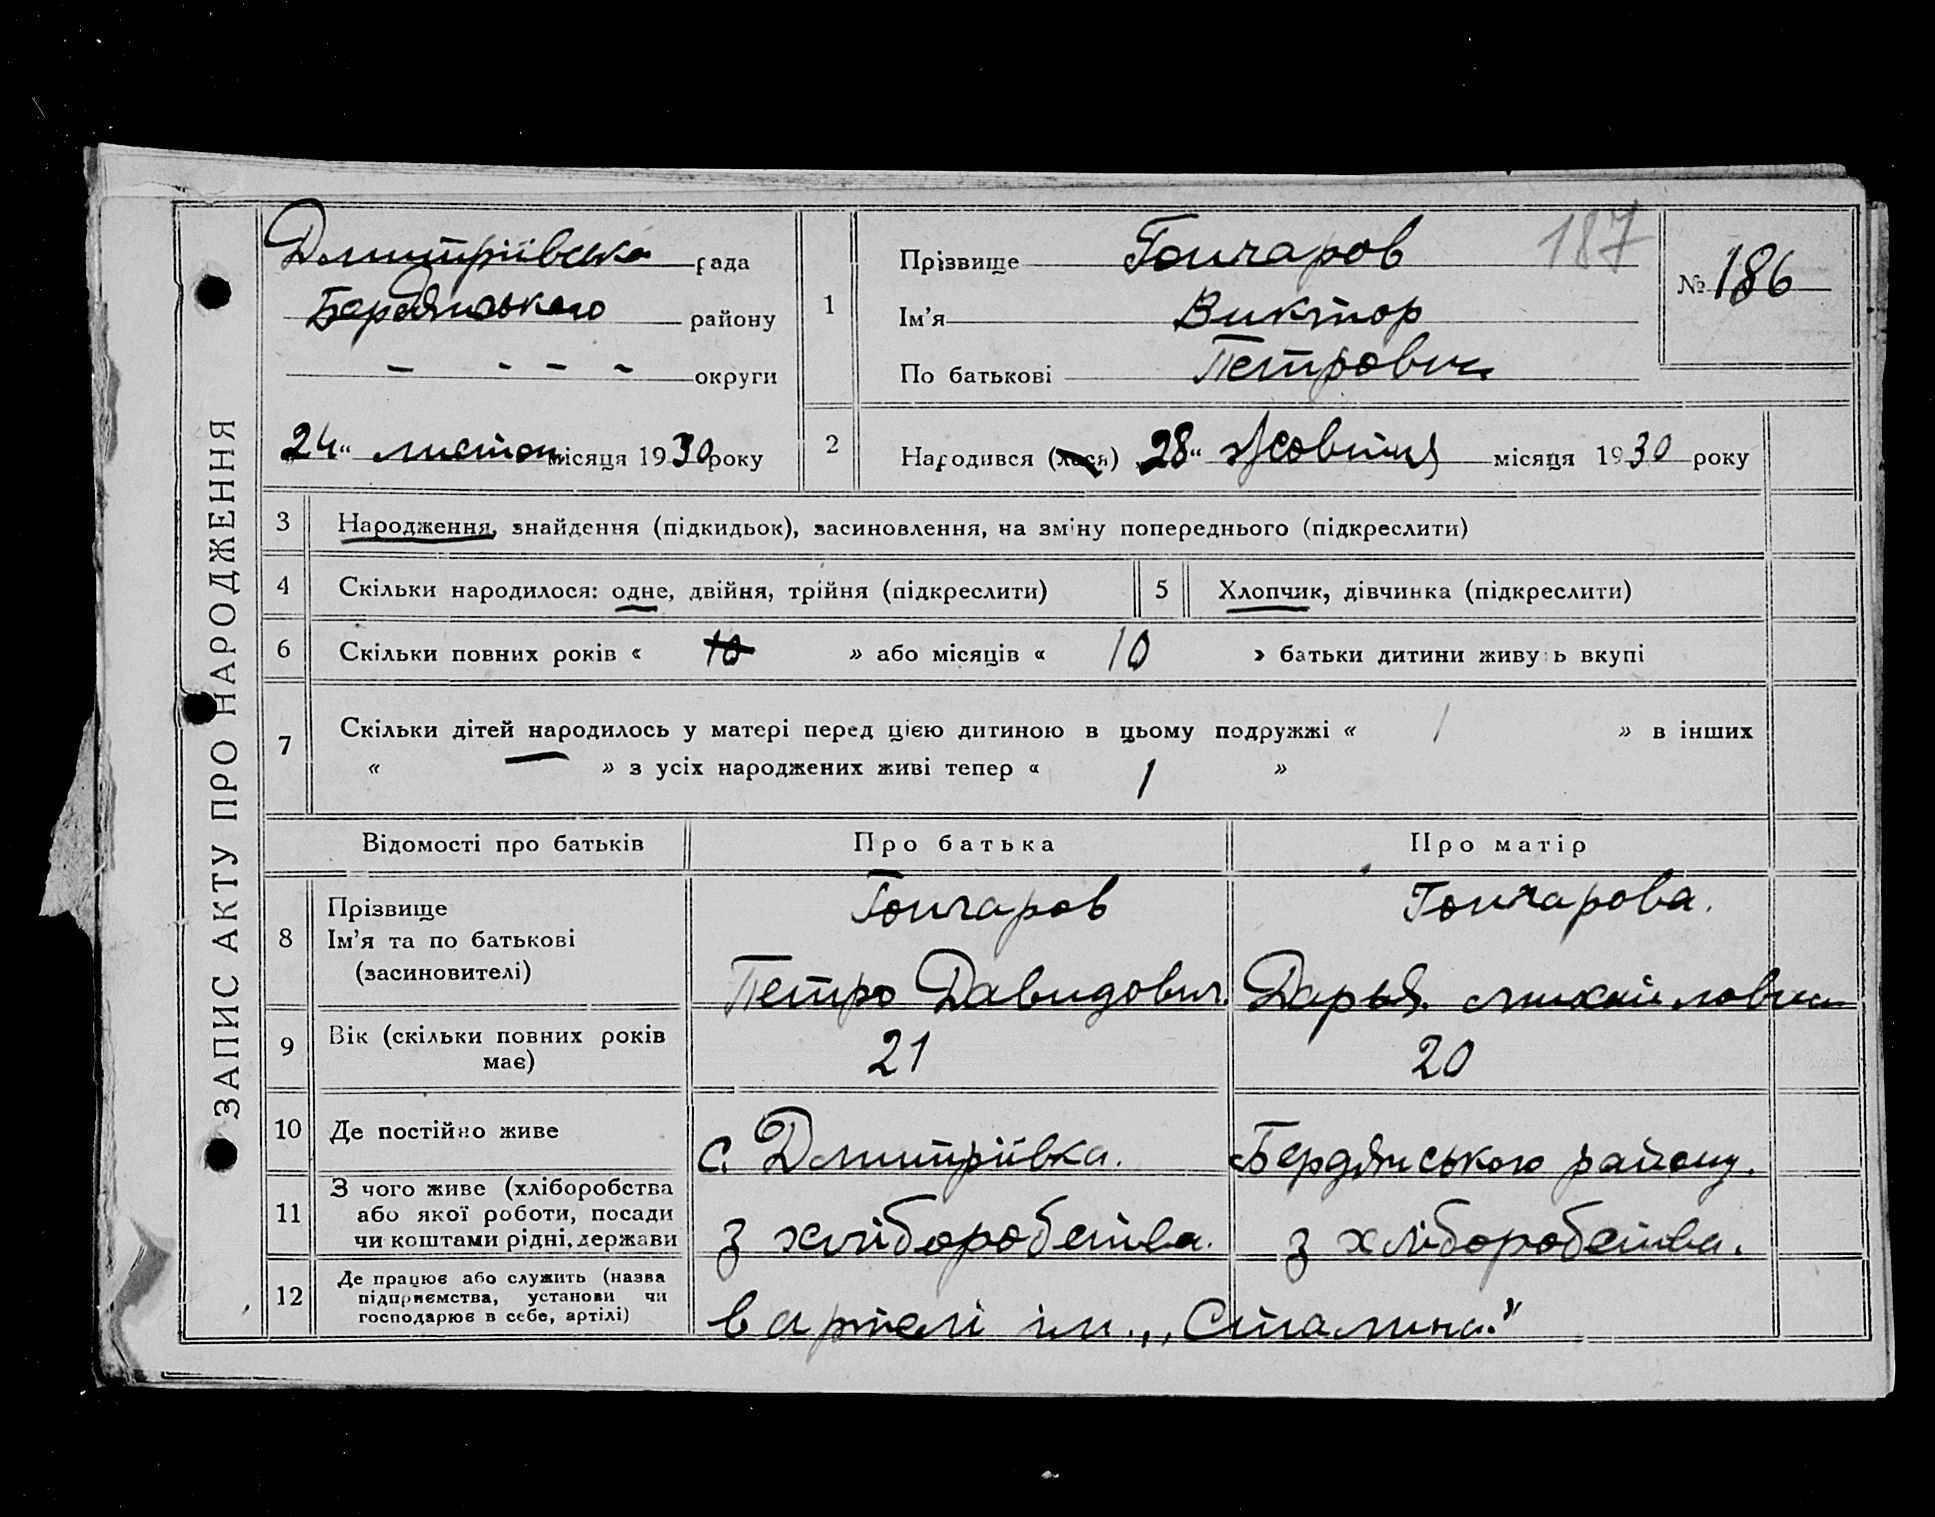 ЗАПИС АКТУ ПРО НАРОДЖЕННЯ
Дмитріївська рада
Бердянського району
- - - - округи
„24“ листоп місяця 1930 року
1
Прізвище Гончаров
187
№ 186
Ім’я Виктор
По батькові Петрович
2
Народився (лася) „28“ Жовтня місяця 1930 року
3 Народження, знайдення (підкидьок), засиновлення, на зміну попереднього (підкреслити)
4 Скільки народилося: одне, двійня, трійня (підкреслити) 5 Хлопчик, дівчинка (підкреслити)
6 Скільки повних років « 10 » або місяців « 10 » батьки дитини живуть вкупі
7 Скільки дітей народилось у матері перед цією дитиною в цьому подружжі « 1 » в інших
« — » з усіх народжених живі тепер « 1 »
Відомості про батьків Про батька Про матір
8 Прізвище Гончаров Гончарова.
Ім’я та по батькові
(засиновителі) Петро Давидович. Дарья Михайловна
9 Вік (скільки повних років має) 21 20
10 Де постійно живе с. Дмитріївка. Бердянського району.
11 З чого живе (хліборобства
або якої роботи, посади
чи коштами рідні, держави з хліборобства. з хліборобства.
12 Де працює або служить (назва
підприємства, установи чи
господарює в себе, артілі) в артелі ім. „Сталина.”